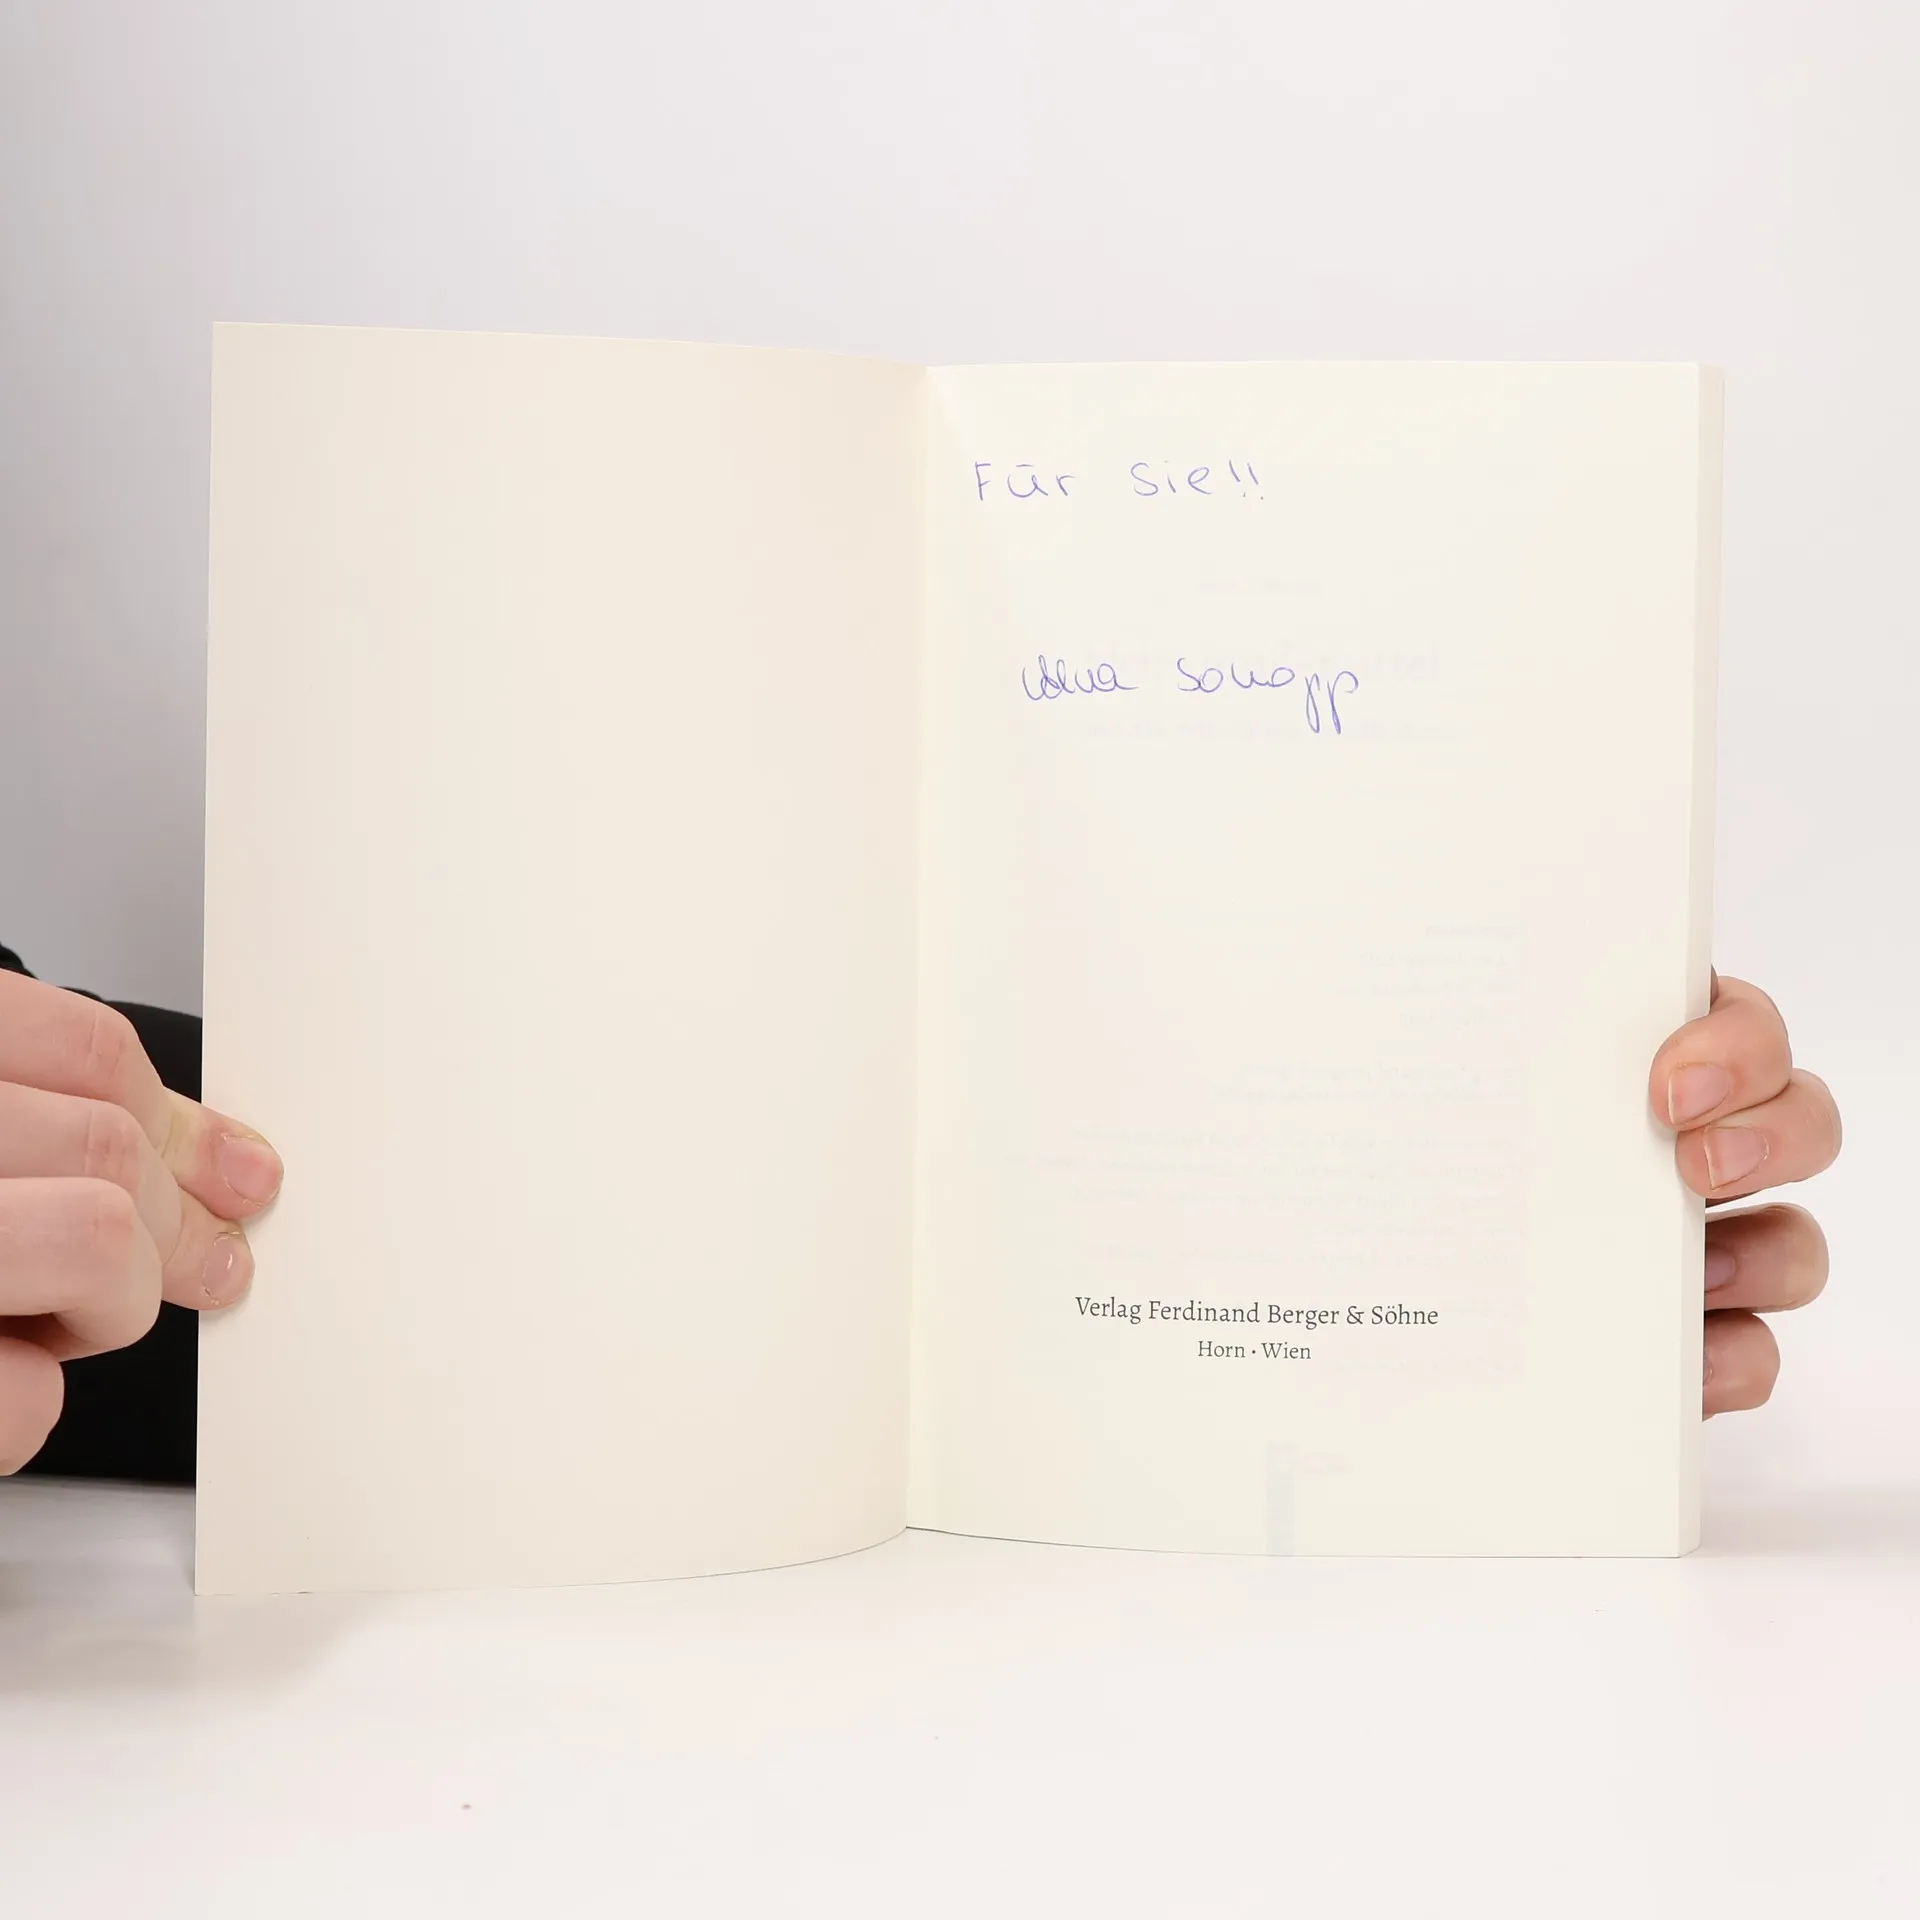 Für Sie!!
Verlag Ferdinand Berger & Söhne
Horn • Wien